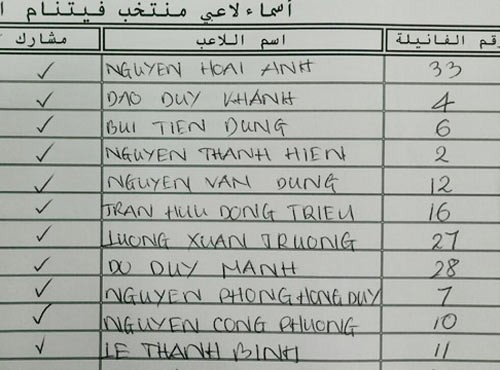 أسماء لاعبي منتخب فيتنام
رقم الفانيلة اسم اللاعب مشارك
33 NGUYEN HOAI ANH ✓
4 DAO DUY KHANH ✓
6 BUI TIEN DUNG ✓
2 NGUYEN THANH HIEN ✓
12 NGUYEN VAN DUNG ✓
16 TRAN HUU DONG TRIEU ✓
27 LUONG XUAN TRUONG ✓
28 DO DUY MANH ✓
7 NGUYEN PHONG HONG DUY ✓
10 NGUYEN CONG PHUONG ✓
11 LE THANH BINH ✓